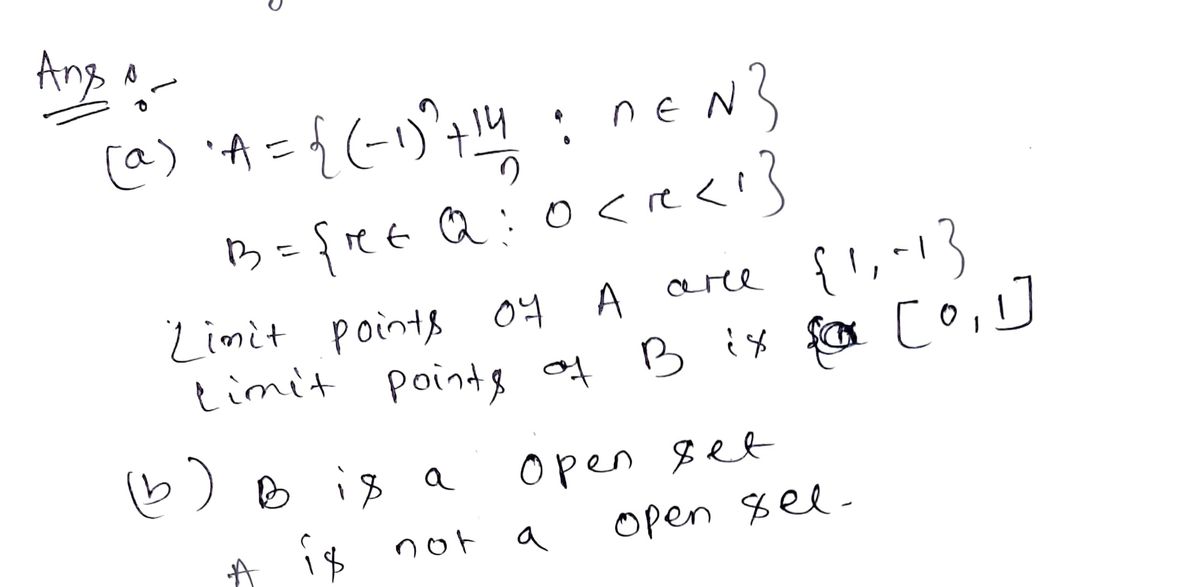 Ans :-
(a) A = {(-1)^n + 14/n : n ∈ N}
B = {r ∈ Q : 0 < r < 1}
Limit points of A are {1, -1}
Limit points of B is [0, 1]
(b) B is a open set
A is not a open set.